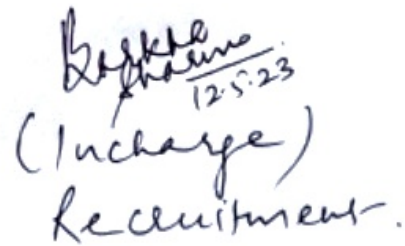 Sharma
12.5.23
(Incharge)
Recruitment.